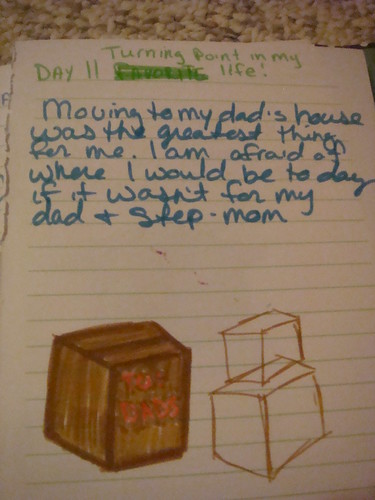 Turning Point in my
DAY 11 life!
Moving to my dad's house
was the greatest thing
for me. I am afraid of
where I would be to day
if it wasn't for my
dad + Step-mom
DADS